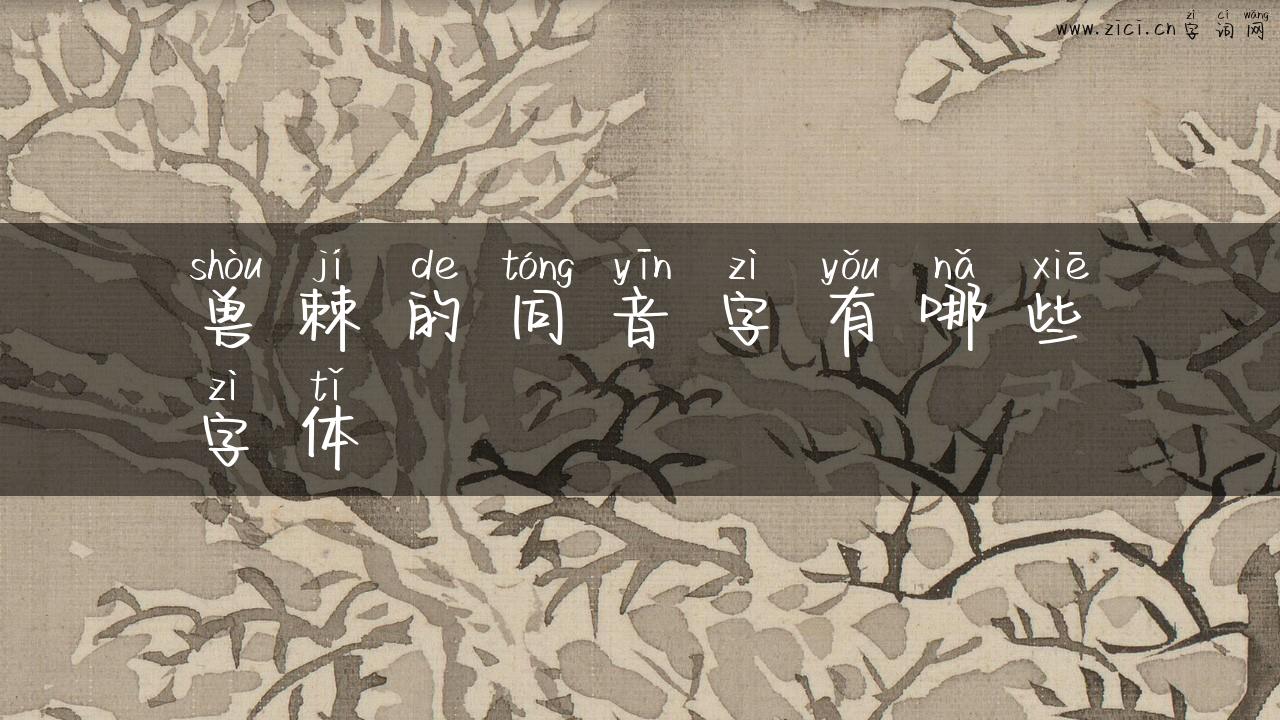 zì cí wǎng
www.zici.cn 字 词 网
shòu jí de tóng yīn zì yǒu nǎ xiē
兽 棘 的 同 音 字 有 哪 些
zì tǐ
字 体